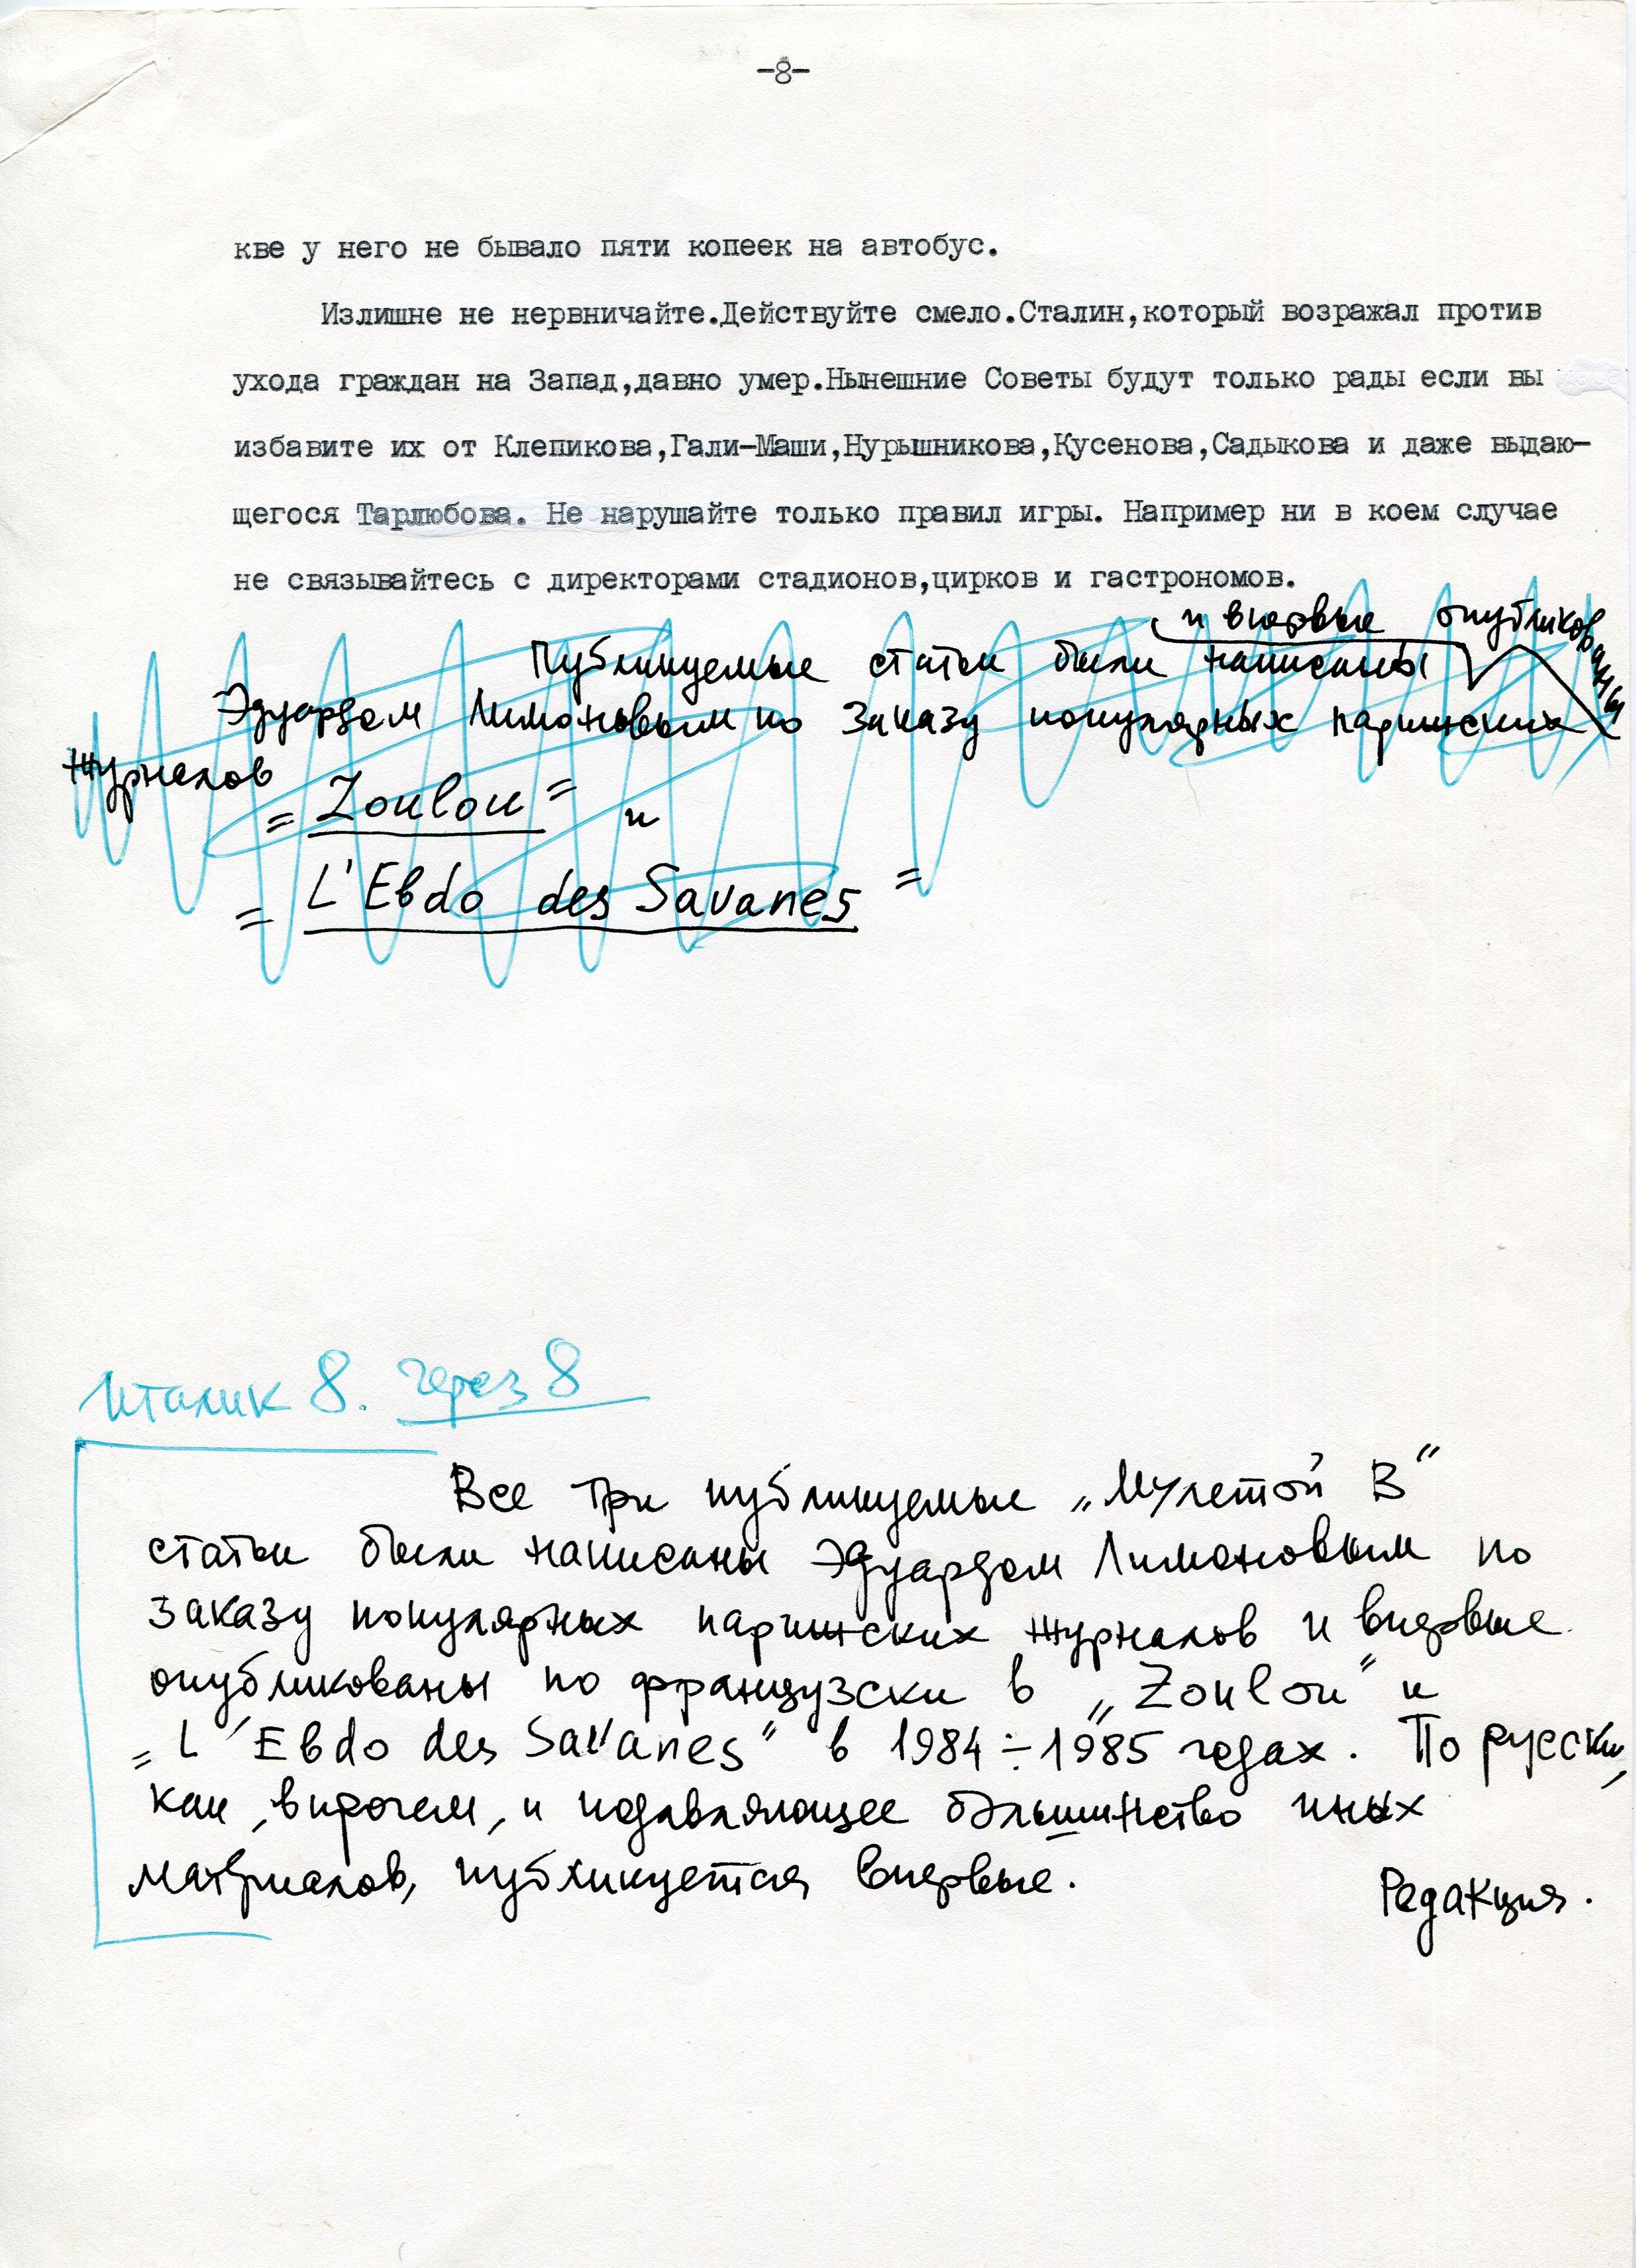 -8-
кве у него не бывало пяти копеек на автобус.
Излишне не нервничайте.Действуйте смело.Сталин,который возражал против
ухода граждан на Запад,давно умер.Нынешние Советы будут только рады если вы
избавите их от Клепикова,Гали-Маши,Нурышникова,Кусенова,Садыкова и даже выдаю-
щегося Тарлюбова. Не нарушайте только правил игры. Например ни в коем случае
не связывайтесь с директорами стадионов,цирков и гастрономов.
и впервые опубликованы
Публикуемые статьи были написаны
Эдуардом Лимоновым по заказу популярных парижских
журналов
"Zoulou" и
"L'Ebdo des Savanes"
италик 8. через 8
Все три публикуемые „Мулетой В"
статьи были написаны Эдуардом Лимоновым по
заказу популярных парижских журналов и впервые
опубликованы по французски в „Zoulou" и
„L'Ebdo des Savanes" в 1984÷1985 годах. По русски,
как, впрочем, и подавляющее большинство иных
материалов, публикуется впервые.
Редакция.